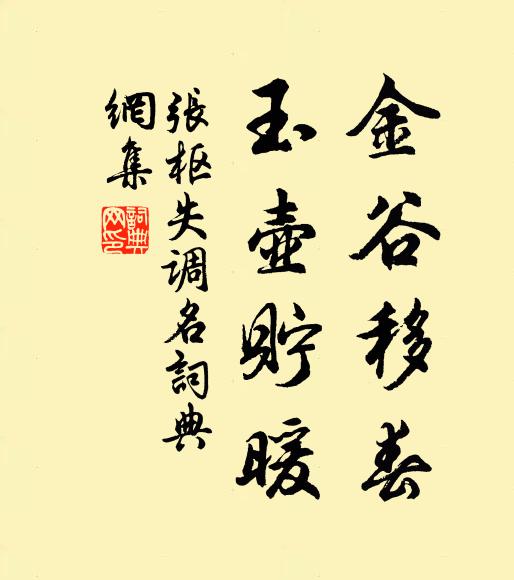 金谷移春
玉壺貯暖
張枢失调名詞典
網集
詞典
网印